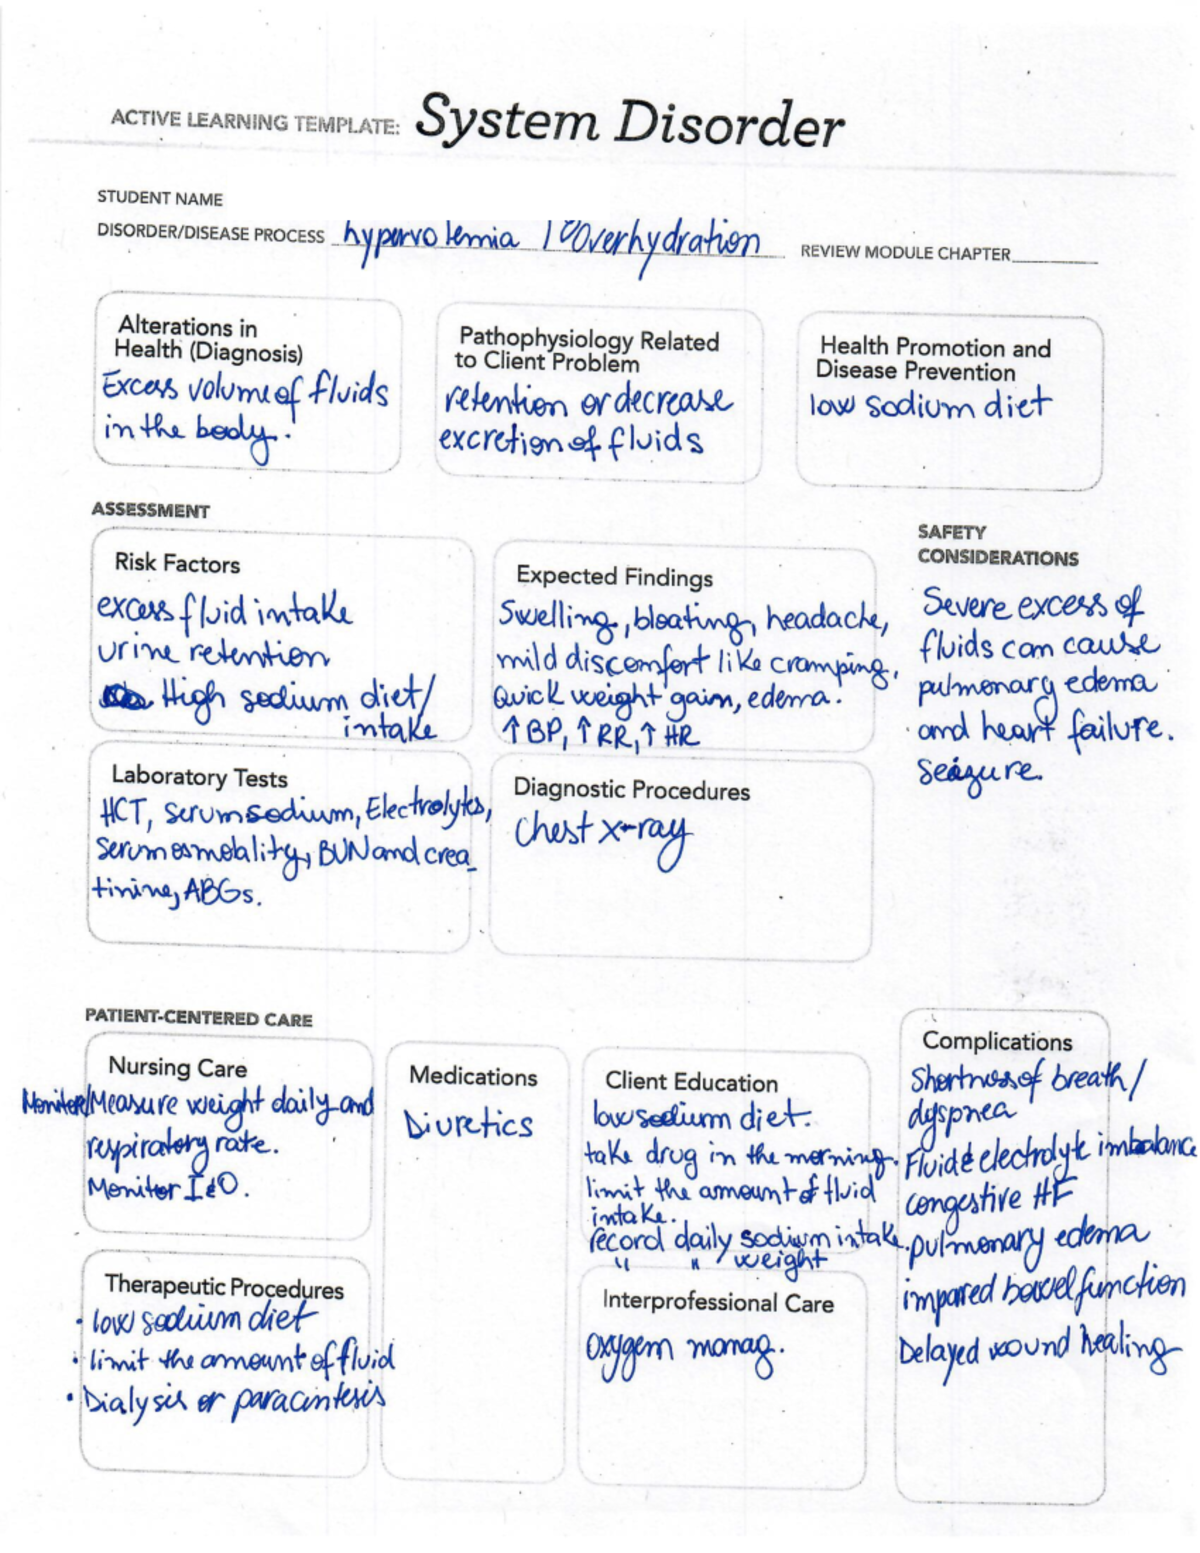 ACTIVE LEARNING TEMPLATE: System Disorder
STUDENT NAME
DISORDER/DISEASE PROCESS hypervolemia / Overhydration REVIEW MODULE CHAPTER
Alterations in
Health (Diagnosis)
Excess volume of fluids
in the body.
Pathophysiology Related
to Client Problem
retention or decrease
excretion of fluids
Health Promotion and
Disease Prevention
low sodium diet
ASSESSMENT
Risk Factors
excess fluid intake
urine retention
High sodium diet/
intake
Expected Findings
Swelling, bloating, headache,
mild discomfort like cramping,
Quick weight gain, edema.
↑BP, ↑RR, ↑HR
SAFETY
CONSIDERATIONS
Severe excess of
fluids can cause
pulmonary edema
and heart failure.
Seizure.
Laboratory Tests
HCT, Serum sodium, Electrolytes,
Serum osmolality, BUN and crea_
tinine, ABGs.
Diagnostic Procedures
Chest x-ray
PATIENT-CENTERED CARE
Nursing Care
Monitor/Measure weight daily and
respiratory rate.
Monitor I&O.
Medications
Diuretics
Client Education
low sodium diet.
take drug in the morning.
limit the amount of fluid
intake.
record daily sodium intake.
" " weight
Complications
Shortness of breath/
dyspnea
Fluid & electrolyte imbalance
congestive HF
pulmonary edema
impared bowel function
Delayed wound healing
Therapeutic Procedures
• low sodium diet
• limit the amount of fluid
• Dialysis or paracintesis
Interprofessional Care
Oxygem manag.